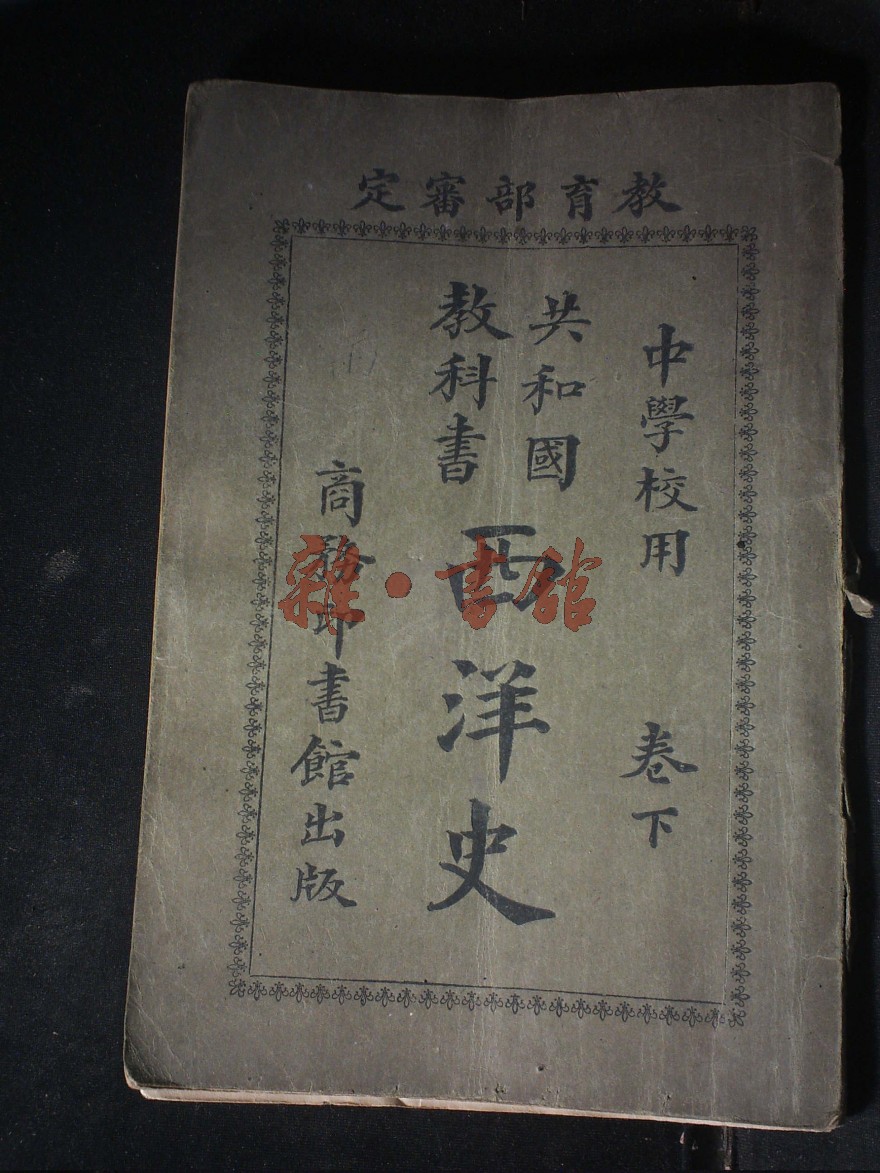 教育部審定
中學校用 卷下
共和國
教科書
西洋史
商務印書館出版
雜·書館